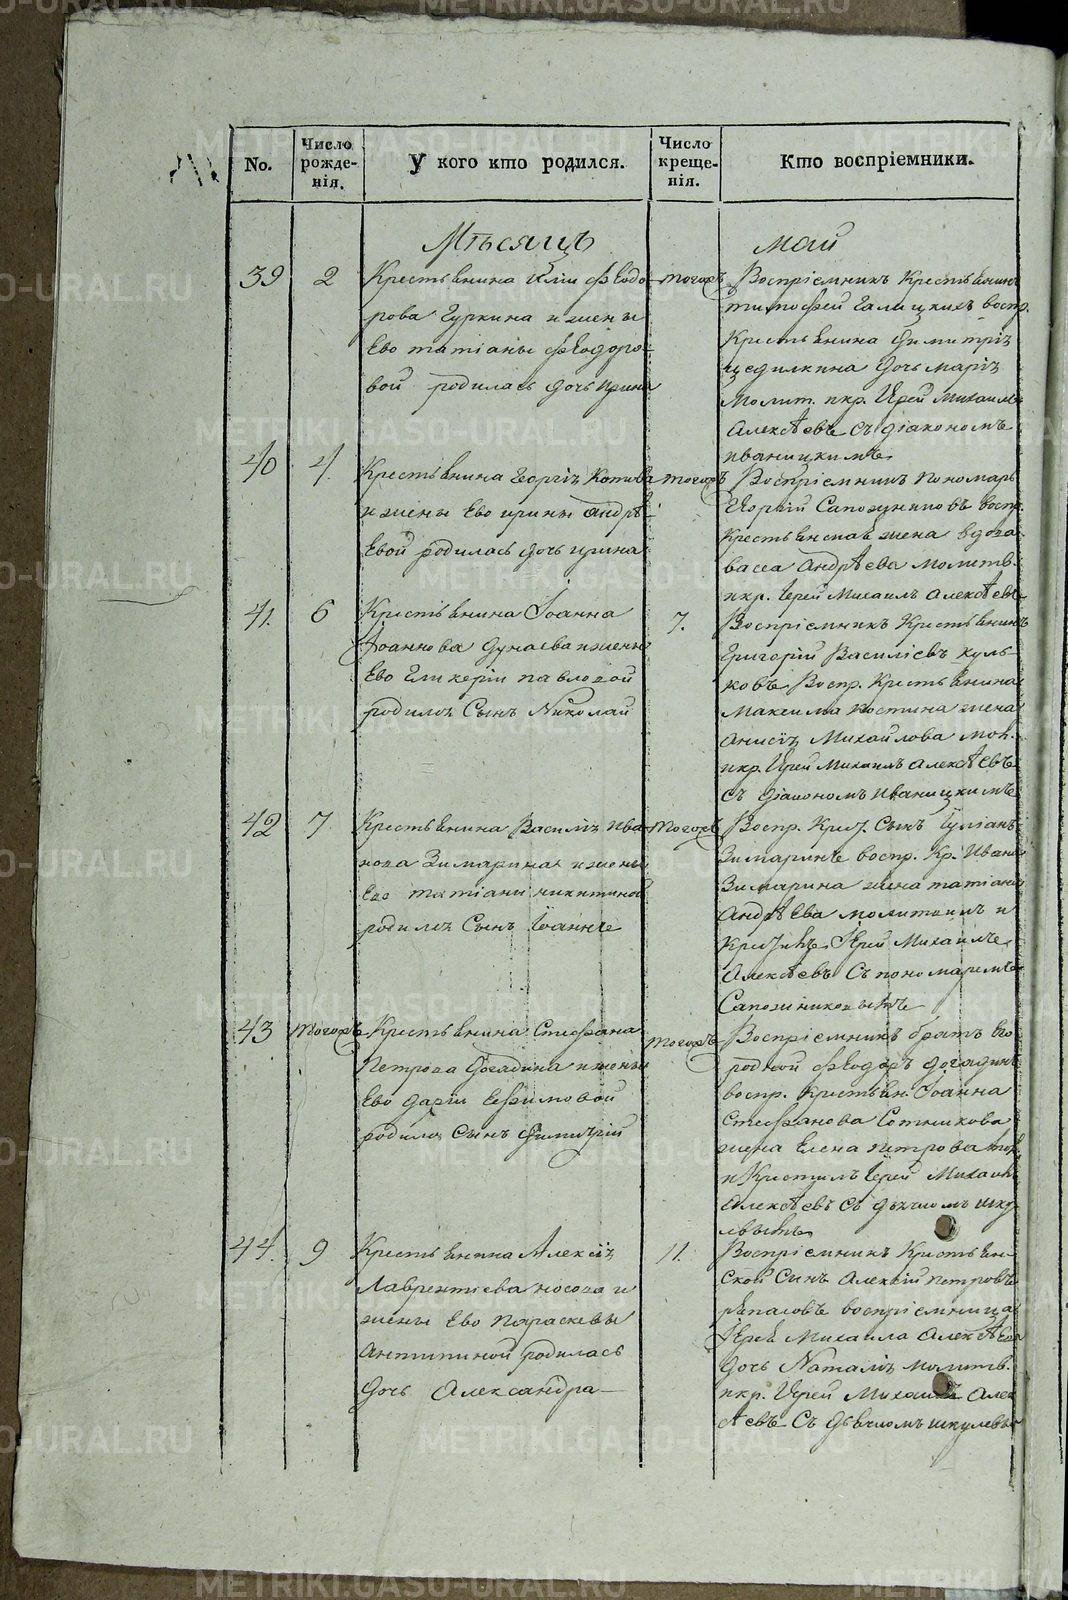 No.
Число рожденія.
У кого кто родился.
Число крещенія.
Кто воспріемники.
Мѣсяцъ
май
39
2
Крестьянина Иліи Феодо-
рова Гуркина и жены
Ево татіаны Феодоро-
вой родилась дочь ирина
тогожъ
Воспріемникъ Крестьянинъ
тимофей Галицкихъ воспр.
Крестьянина Димитрія
дочь марія
Молит. икр. Іерей Михаилъ
Алексѣевъ Съ діакономъ
иваницкимъ
40
4.
Крестьянина Георгія Котова
и жены Ево ирины андрѣ-
Евой родилась дочь ирина
тогожъ
Воспріемникъ пономарь
Сапожниковъ воспр.
Крестьянская жена вдова
васса андрѣева молитв.
икр. Іерей Михаилъ алексѣевъ
41.
6
Крестьянина Іоанна
Іоаннова Дунаева и жены
Ево Гликеріи павловой
родился Сынъ Николай
7.
Воспріемникъ Крестьянинъ
Григорій Василіевъ куль-
ковъ Воспр. Крестьянина
Максима костина жена
анисія Михайлова мол.
икр. Іерей Михаилъ алексѣевъ
съ діакономъ иваницкимъ
42
7
Крестьянина Василія ива-
нова Зимарина и жены
Ево татіаны никитиной
родился Сынъ Іоаннъ
тогожъ
Воспр. Крест. Сынъ Іуліанъ
Зимаринъ воспр. Кр. Ивана
Зимарина жена татіана
андрѣева молитвилъ и
Крестилъ Іерей Михаилъ
Алексѣевъ Съ пономаремъ
Сапожниковымъ
43
тогожъ
Крестьянина Стефана
Петрова Догадина и жены
Ево даріи Ефимовой
родился Сынъ Димитрій
тогожъ
Воспріемникъ братъ Его
родной Феодоръ догадинъ
воспр. Крестьян. Іоанна
Стефанова Сотникова
жена Елена петрова мол.
и Крестилъ Іерей Михаилъ
Алексѣевъ Съ дьячкомъ шку-
левымъ
44.
9
Крестьянина Алексія
Лаврентіева носова и
жены Ево параскевы
антипиной родилась
дочь Александра
11.
Воспріемникъ Крестьян-
ской сынъ алексій петровъ
воспріемница
Іерея Михаила алексѣева
дочь Наталія молитв.
икр. Іерей Михаилъ Алек-
сѣевъ Съ дьячкомъ шкулевы
METRIKI.GASO-URAL.RU